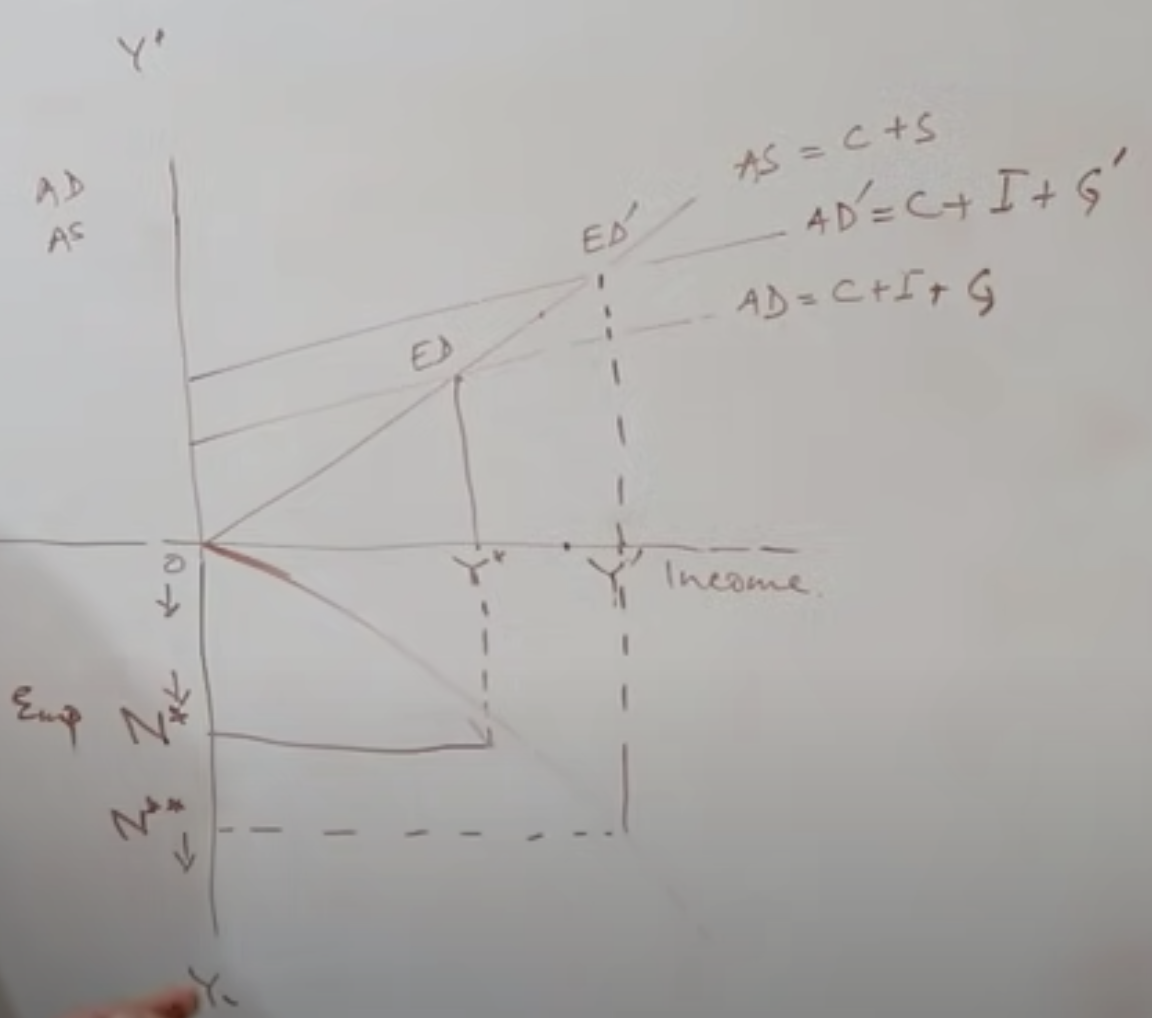 Y'
AD
AS
AS = C + S
AD' = C + I + G'
ED'
AD = C + I + G
ED
O
Y*
Y'
Income
Emp
N*
N**
Y